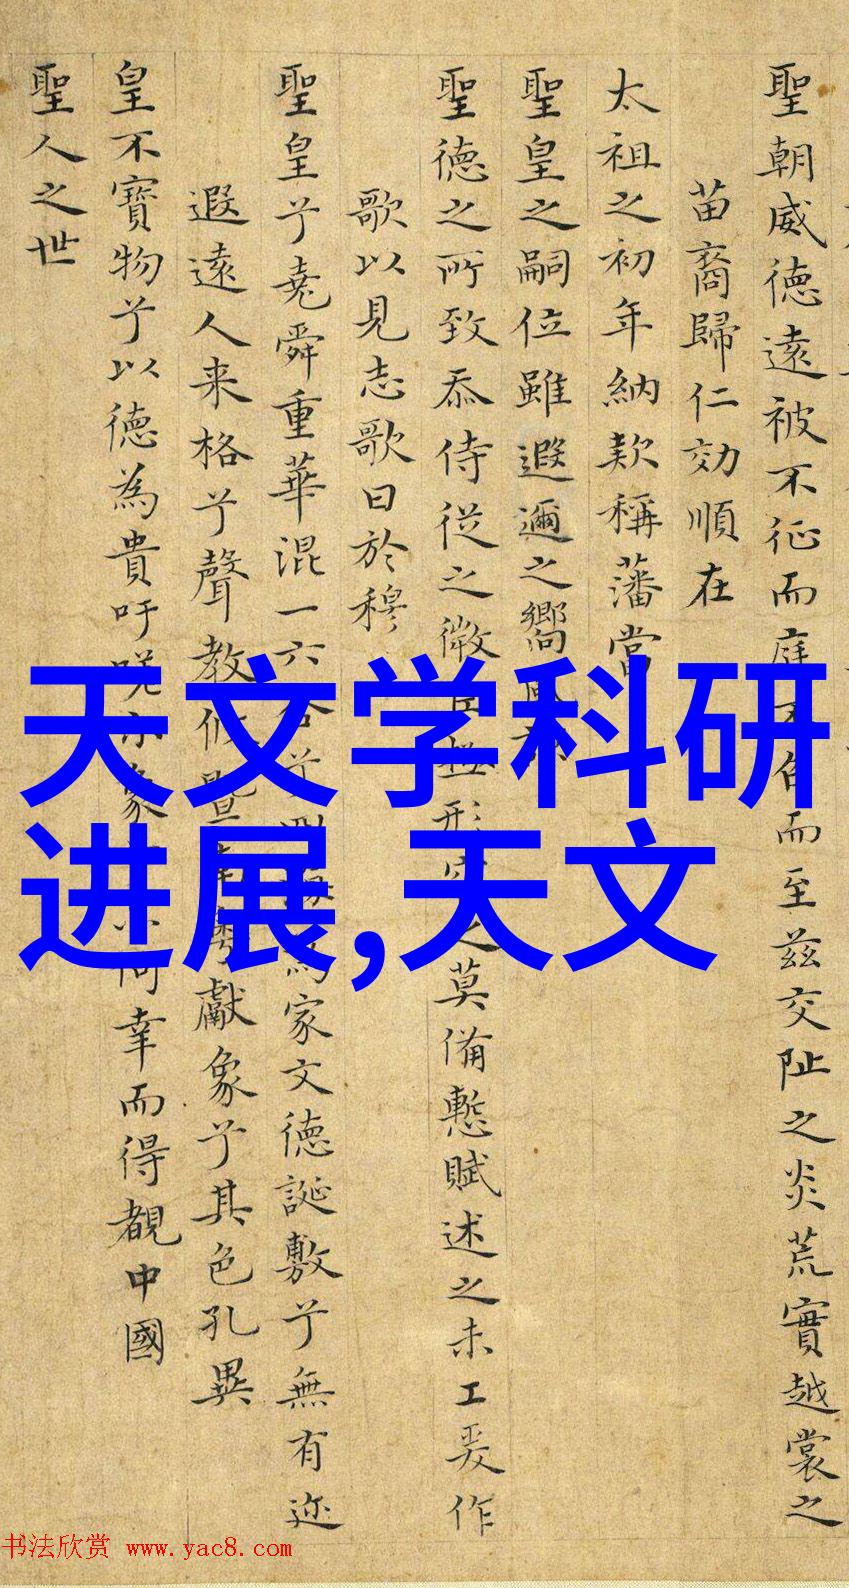 聖朝威德遠被不征而庭不召而至茲交阯之炎荒實越裳之
苗裔歸仁効順在
太祖之初年納款稱藩當
聖皇之嗣位雖遐邇之嚮風
聖德之所致忝侍從之微極形之莫備慙賦述之未工爰作
歌以見志歌曰於穆
聖皇兮堯舜重華混一六合兮家文德誕敷兮無有迩
遐遠人来格兮聲教攸暨獻象兮其色孔異
皇不寶物兮以德為貴吁嗟象幸而得覩中國
聖人之世
天文学科研
进展,天文
书法欣赏 www.yac8.com